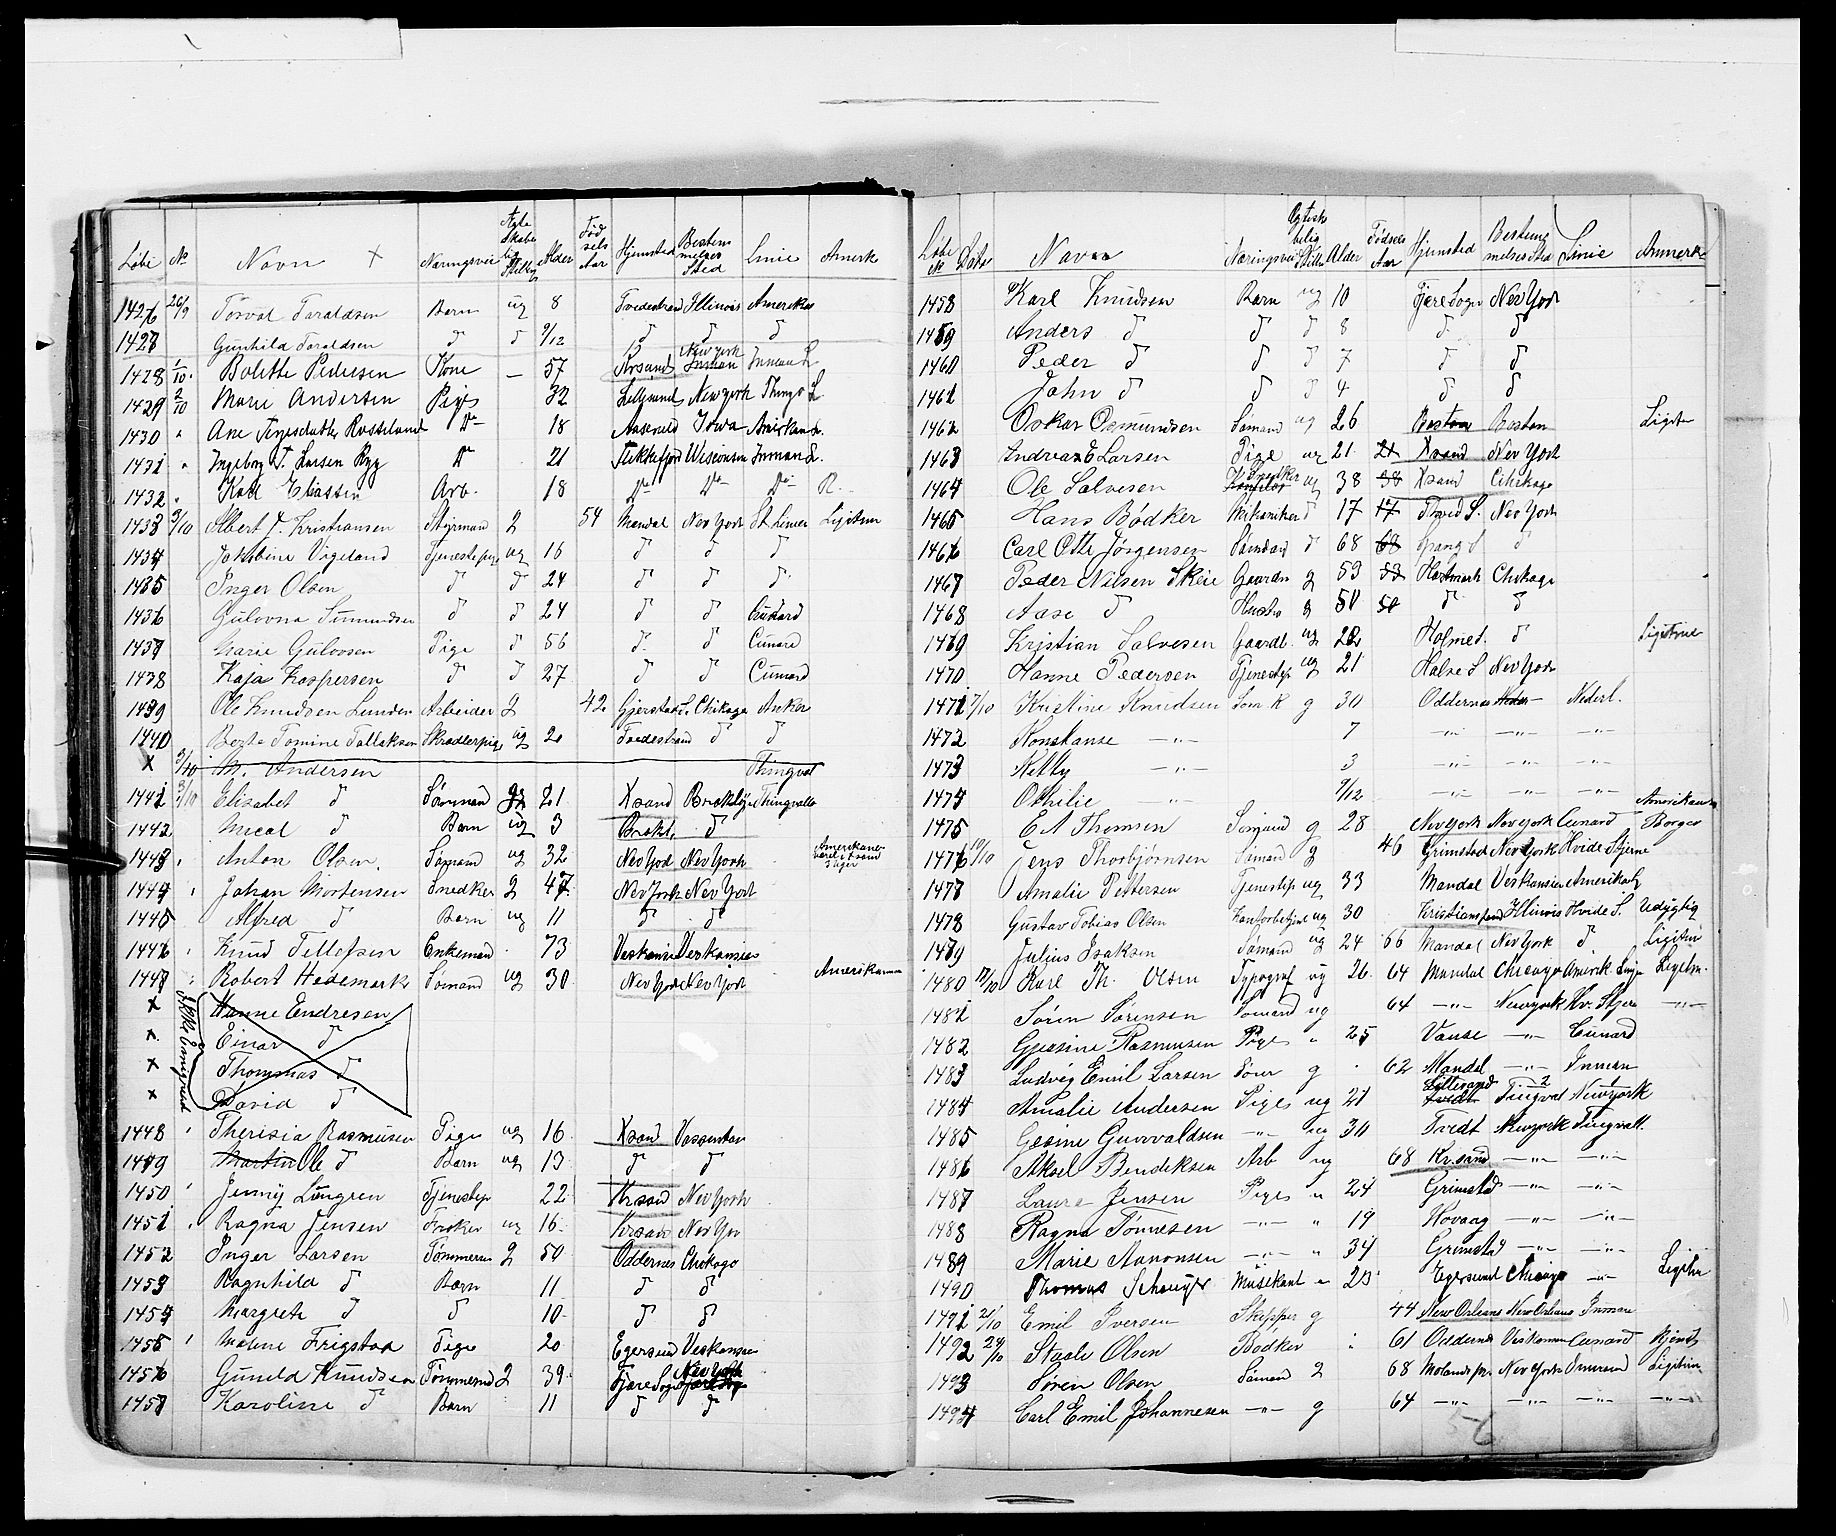 Løbe No Navn + Næringsvei Ægte skabelig Stilling Alder Fødsels Aar Hjemsted Bestemmelses Sted Linie Anmerk
1426 26/9 Torval Taraldsen Barn ug 8 Tvedestrand Illinois Amerikan
1427 Gunhild Taraldsen d d 9/12 d d d
1428 1/10 Bolette Pedersen Kone — 57 Krsand New york Inman Inman L
1429 2/10 Marie Andersen Pige 32 Lillesand New york Thingv L
1430 " Ane Rosseland Do 18 Aaserald Iowa Amerikan L.
1431 " Ingeborg T. Larsen Ryg Do 21 Flekkefjord Wisconsin Inman L.
1432 " Karl Eliassen Arb. 18 Do Do Do R.
1433 3/10 Albert T. Kristiansen Styrmand g 54 Mandal New York St Linien Ligitim
1434 Jakobine Vigeland Tjenestepige ug 16 d d d
1435 Inger Olsen d d 24 d d d
1436 Gulovna Gunnundsen d d 24 d d Cunard
1437 Marie Gulovsen Pige d 56 d d Cunard
1438 Kaja Kaspersen d d 27 d d Cunard
1439 Ole Knudsen Lunden Arbeider g 42 Gjerstad S. Chikago Anker
1440 Tomine Tallaksen Skrædderpige ug 20 Tvedestrand d d
x 3/10 M. Andersen Thingval
1441 3/10 Elisabet d Sømand 21 Xsand Broklyn Thingvalla
1442 Mical d Barn ug 3 Brokl. d
1443 " Anton Olsen Sømand ug 32 New York New York Amerikaner
1444 " Johan Mortensen Snedker g 47 New York New York
1445 Alfred d Barn ug 11 d d
1446 " Knud Tellefsen Enkemand 73 Veskansin Veskansin
1447 " Robert Hedemark Sømand ug 30 New York New York Amerikaner
x Hanne Endresen
x Einar d
x Thommas d
x David d
1448 " Theresia Rasmusen Pige ug 16 Xsand Vassenton
1449 Martin Ole d Barn ug 13 d d
1450 " Jenny Lungren Tjenestep 22 Krsand New York
1451 " Ragna Jensen Frøken ug 16 Krsand New Yor
1452 Inger Larsen Tømmerm g 50 Oddernes Chikago
1453 Ragnhild d Barn 11 d d
1454 Margrete d d 10 d d
1455 " Maline Frigstad Pige 20 Egersund Veskansin
1456 Gunild Knudsen Tømmermd g 39 Fjære Sogn New York
1457 Karoline d Barn 11 d d
Løbe No Dato Navn Næringsvei Ægteskabelig Still Alder Fødsels Aar Hjemsted Bestemmelses Sted Linie Anmerk
1458 Karl Knudsen Barn ug 10 Fjere Sogn New York
1459 Anders d d d 8 d d
1460 Peder d d d 7 d d
1461 John d d d 4 d d
1462 Oskar Osmundsen Sømand ug 26 Boston Boston Ligitm
1463 Andreas E Larsen Pige ug 21 21 Xsand New York
1464 Ole Salvesen Snedker ug 38 38 Xsand Chikago
1465 Hans Bødker Mekaniker d 17 17 Tved S. New York
1466 Carl Otto Jørgensen Sømand d 68 68 d
1467 Peder Nilsen Skeie Gaardm g 53 53 Chikago
1468 Aase d Hustru g 50 50 d d
1469 Kristian Salvesen Gaardb. ug 22 Holmes. d Ligitime
1470 Hanne Pedersen Tjenestep ug 21 Halse S New York
1471 7/10 Kristine Knudsen Søm K g 30 Oddernes Nederl.
1472 Konstanse —"— 7 —"— —"— —"—
1473 Ketty —"— 3 —"— —"— —"—
1474 Othilie " 9/12 —"— —"— —"—
1475 E A Thomsen Sømand g 28 New York New York Cunard Amerikansk Borger
1476 10/10 Jens Thorbjørnsen Sømand g 46 Grimstad New York Hvide Stjerne
1477 Amalie Pettersen Tjenestep ug 33 Mandal Veskansin Amerika L
1478 Gustav Tobias Olsen Kontorbetjent ug 30 Kristiansand Illinois Hvide S. Udygtig
1479 Julius Isaksen Sømand ug 24 66 Mandal New York d Ligitim
1480 12/10 Karl Th. Olsen Typograf ug 26 64 Mandal Chicago Amerik. Linje Legitim.
1481 Søren Sørensen Sømand ug 64 —"— Newyork Hv. Stjer —"—
1482 Gjesine Rasmusen Pige " 25 Vanse —"— Cunard
1483 Ludvig Emil Larsen g 62 Mandal —"— Inman
1484 Amalie Andersen Piges ug 21 Lillesand Tvedt Tingval Newyork
1485 Gesine Gunvaldsen —"— ug 30 Tvedt Newyork Tingvall.
1486 Aksel Bendiksen Arb ug 68 Kr.sand —"— —"—
1487 Laura Jensen Piges " 24 Grimstad —"— —"—
1488 Ragna Tønnesen —"— " 19 Hovaag —"— —"—
1489 Marie Aanonsen —"— " 34 Grimstd —"— —"—
1490 Thomas Musikant " 25 Egersund Chicago —"— Ligitim
1491 21/10 Emil Iversen Skipper g 44 New Orleans New Orleans Inman
1492 24/10 Staale Olsen Bødker 61 Oddernes Viskonsin Cunard
1493 Søren Olsen Sømand g 68 New York Ligitim
1494 Carl Emil Johannesen —"— g 64 —"— —"— —"— —"—
56